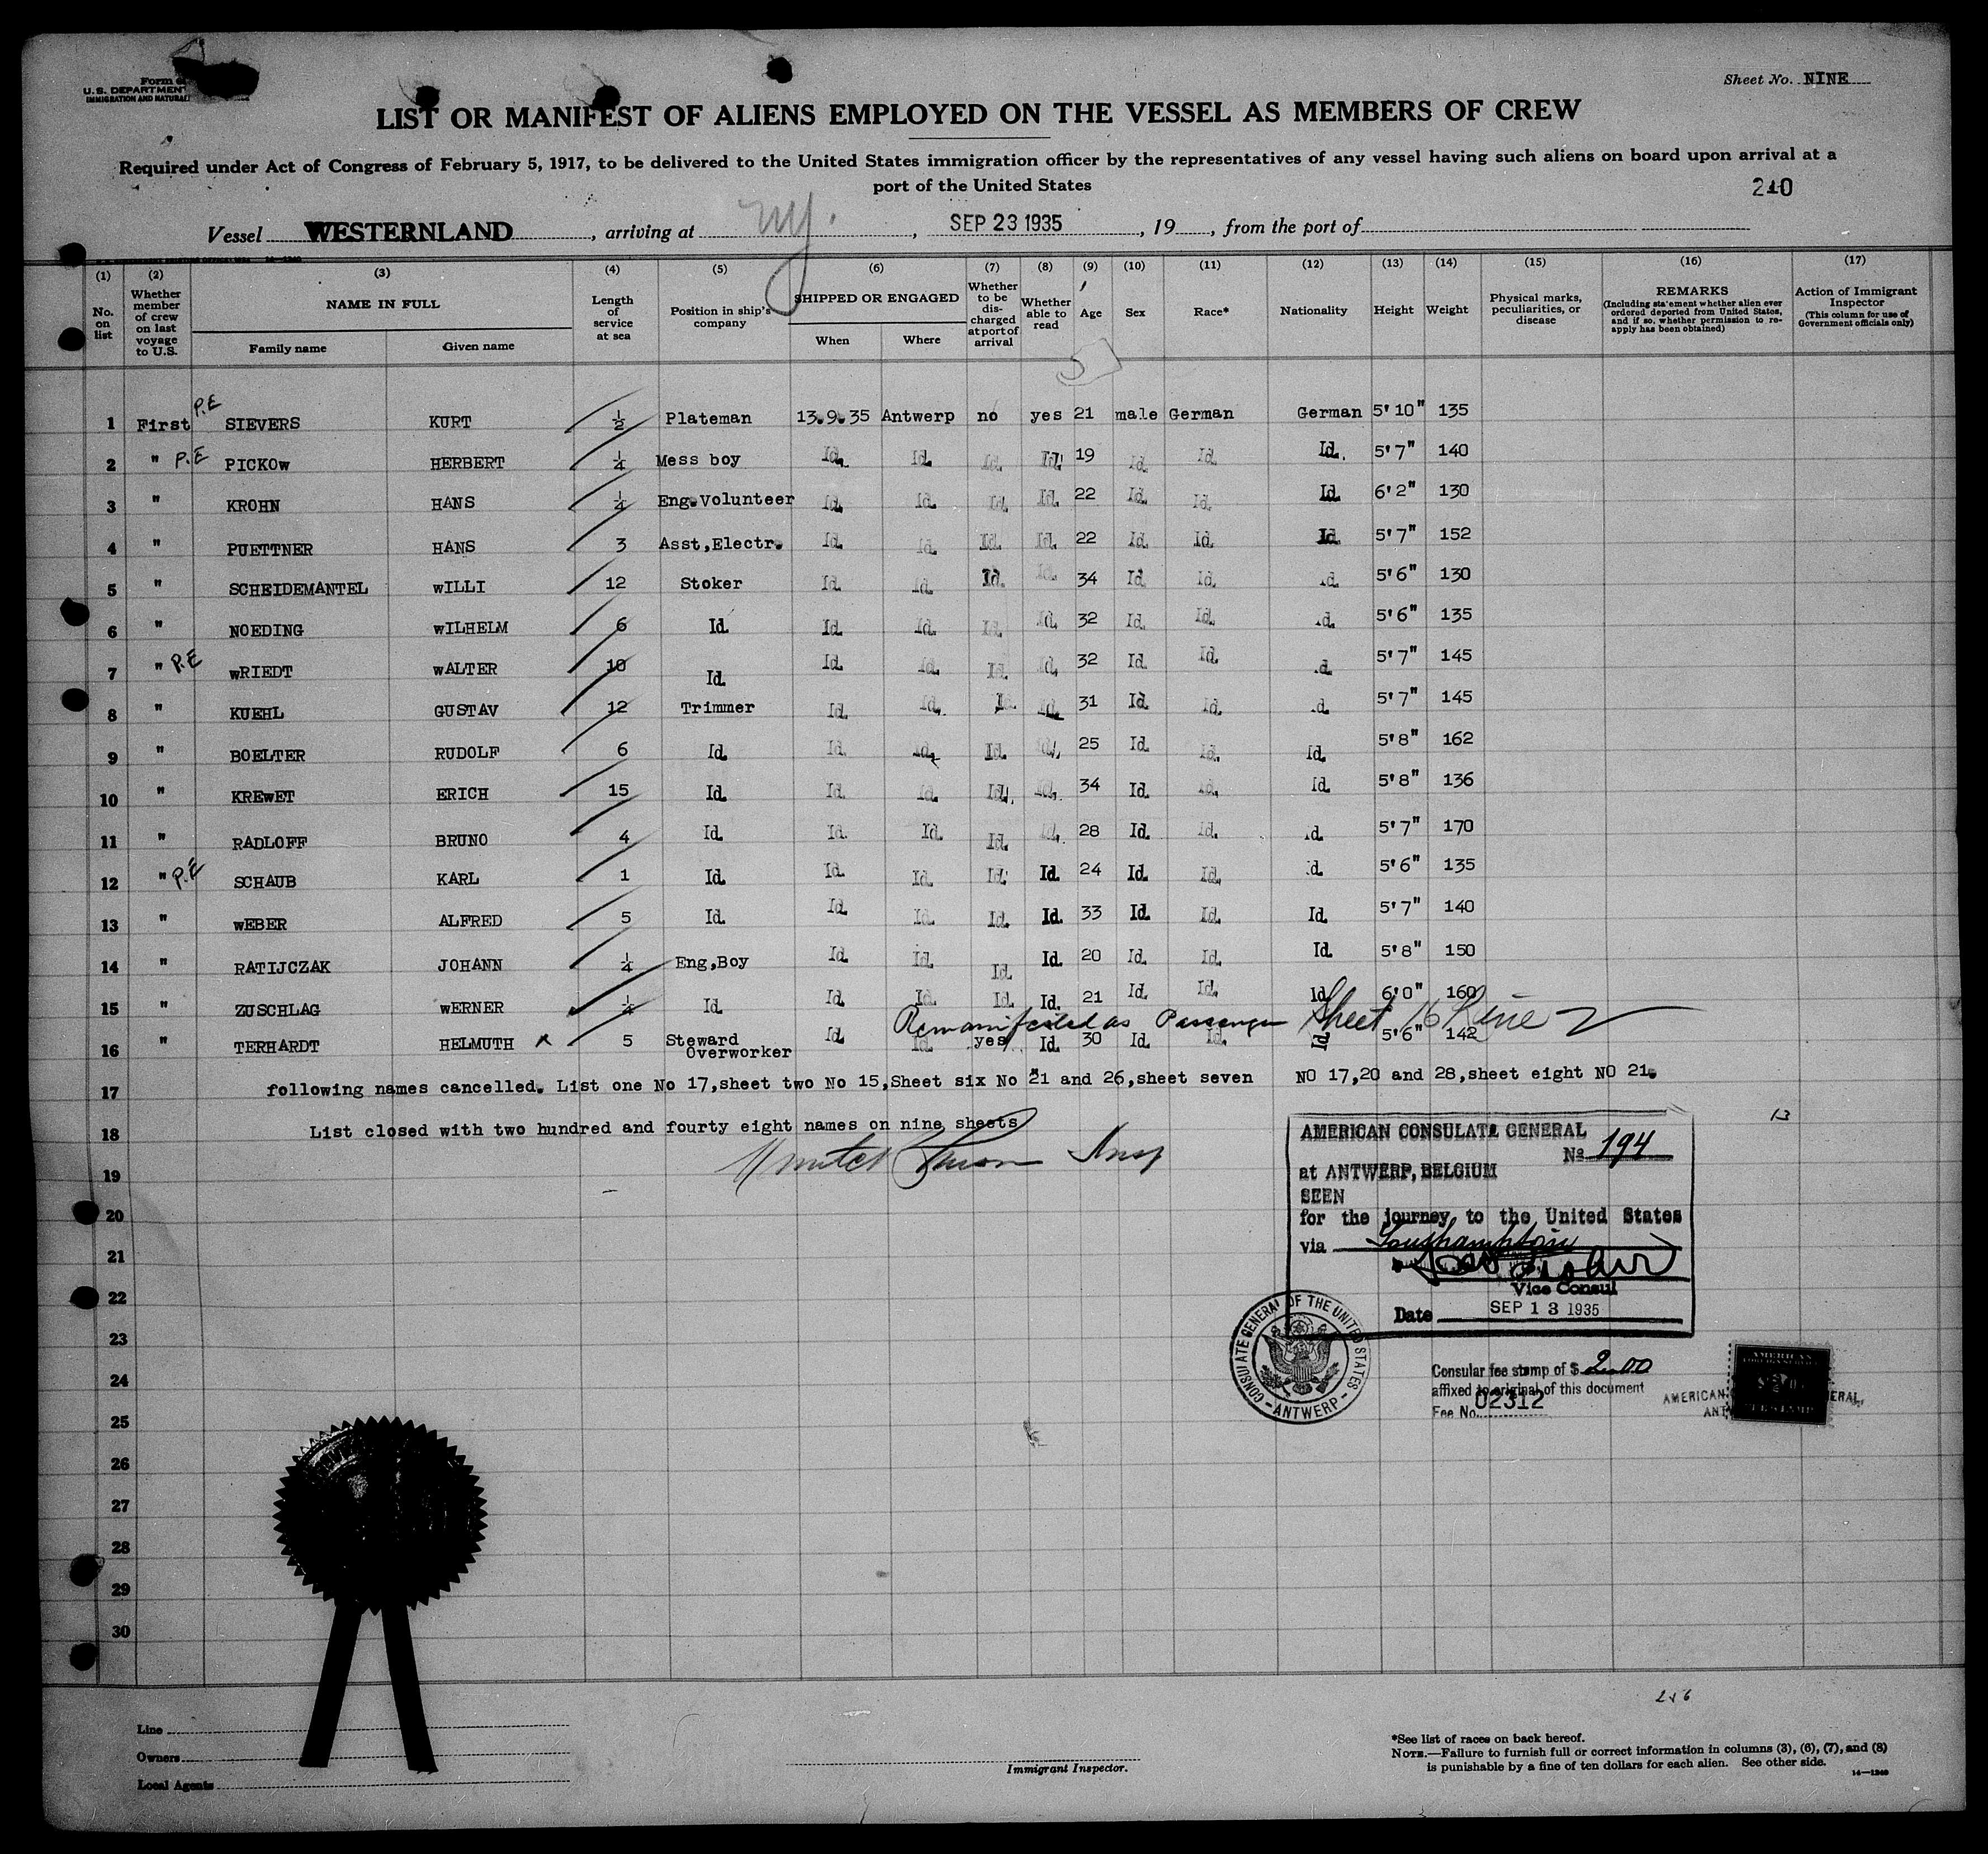 Form
U.S. DEPARTMENT
IMMIGRATION AND NATURAL
Sheet No. NINE
LIST OR MANIFEST OF ALIENS EMPLOYED ON THE VESSEL AS MEMBERS OF CREW
Required under Act of Congress of February 5, 1917, to be delivered to the United States immigration officer by the representatives of any vessel having such aliens on board upon arrival at a
port of the United States
210
Vessel WESTERNLAND, arriving at NY., SEP 23 1935, 19, from the port of
(1) (2) (3) (4) (5) (6) (7) (8) (9) (10) (11) (12) (13) (14) (15) (16) (17)
No. on list
Whether member of crew on last voyage to U.S.
NAME IN FULL
Family name
Given name
Length of service at sea
Position in ship's company
SHIPPED OR ENGAGED
When
Where
Whether to be discharged at port of arrival
Whether able to read
Age
Sex
Race*
Nationality
Height
Weight
Physical marks, peculiarities, or disease
REMARKS
(Including statement whether alien ever ordered deported from United States, and if so, whether permission to reapply has been obtained)
Action of Immigrant Inspector
(This column for use of Government officials only)
1 First P.E SIEVERS KURT ½ Plateman 13.9.35 Antwerp no yes 21 male German German 5'10" 135
2 " P.E PICKOW HERBERT ¼ Mess boy Id. Id. Id. Id. 19 Id. Id. Id. 5'7" 140
3 " KROHN HANS ¼ Eng.Volunteer Id. Id. Id. Id. 22 Id. Id. Id. 6'2" 130
4 " PUETTNER HANS 3 Asst,Electr. Id. Id. Id. Id. 22 Id. Id. Id. 5'7" 152
5 " SCHEIDEMANTEL wILLI 12 Stoker Id. Id. Id. Id. 34 Id. Id. Id. 5'6" 130
6 " NOEDING wILHELM 6 Id. Id. Id. Id. Id. 32 Id. Id. Id. 5'6" 135
7 " P.E wRIEDT wALTER 10 Id. Id. Id. Id. Id. 32 Id. Id. Id. 5'7" 145
8 " KUEHL GUSTAV 12 Trimmer Id. Id. Id. Id. 31 Id. Id. Id. 5'7" 145
9 " BOELTER RUDOLF 6 Id. Id. Id. Id. Id. 25 Id. Id. Id. 5'8" 162
10 " KREwET ERICH 15 Id. Id. Id. Id. Id. 34 Id. Id. Id. 5'8" 136
11 " RADLOFF BRUNO 4 Id. Id. Id. Id. Id. 28 Id. Id. Id. 5'7" 170
12 " P.E SCHAUB KARL 1 Id. Id. Id. Id. Id. 24 Id. Id. Id. 5'6" 135
13 " wEBER ALFRED 5 Id. Id. Id. Id. Id. 33 Id. Id. Id. 5'7" 140
14 " RATIJCZAK JOHANN ¼ Eng,Boy Id. Id. Id. Id. 20 Id. Id. Id. 5'8" 150
15 " ZUSCHLAG wERNER ¼ Id. Id. Id. Id. Id. 21 Id. Id. Id. 6'0" 160
Remanifested as Passenger Sheet 16 Line 2
16 " TERHARDT HELMUTH x 5 Steward Overworker Id. Id. yes Id. 30 Id. Id. Id. 5'6" 142
17 following names cancelled. List one No 17,sheet two No 15,Sheet six No 21 and 26,sheet seven NO 17,20 and 28,sheet eight NO 21.
18 List closed with two hundred and fourty eight names on nine sheets
13
19
20
21
22
23
24
25
26
27
28
29
30
Insp
AMERICAN CONSULATE GENERAL
No 194
at ANTWERP, BELGIUM
SEEN
for the journey to the United States
via Southampton
Vice Consul
Date SEP 13 1935
CONSULATE GENERAL OF THE UNITED STATES - ANTWERP -
Consular fee stamp of $ 2.00
affixed to original of this document
Fee No. 02312
AMERICAN ERAL
ANT
AMERICAN
FOREIGN SERVICE
FEE STAMP
Line
Owners
Local Agents
Immigrant Inspector.
*See list of races on back hereof.
NOTE.—Failure to furnish full or correct information in columns (3), (6), (7), and (8)
is punishable by a fine of ten dollars for each alien. See other side.
14—1240